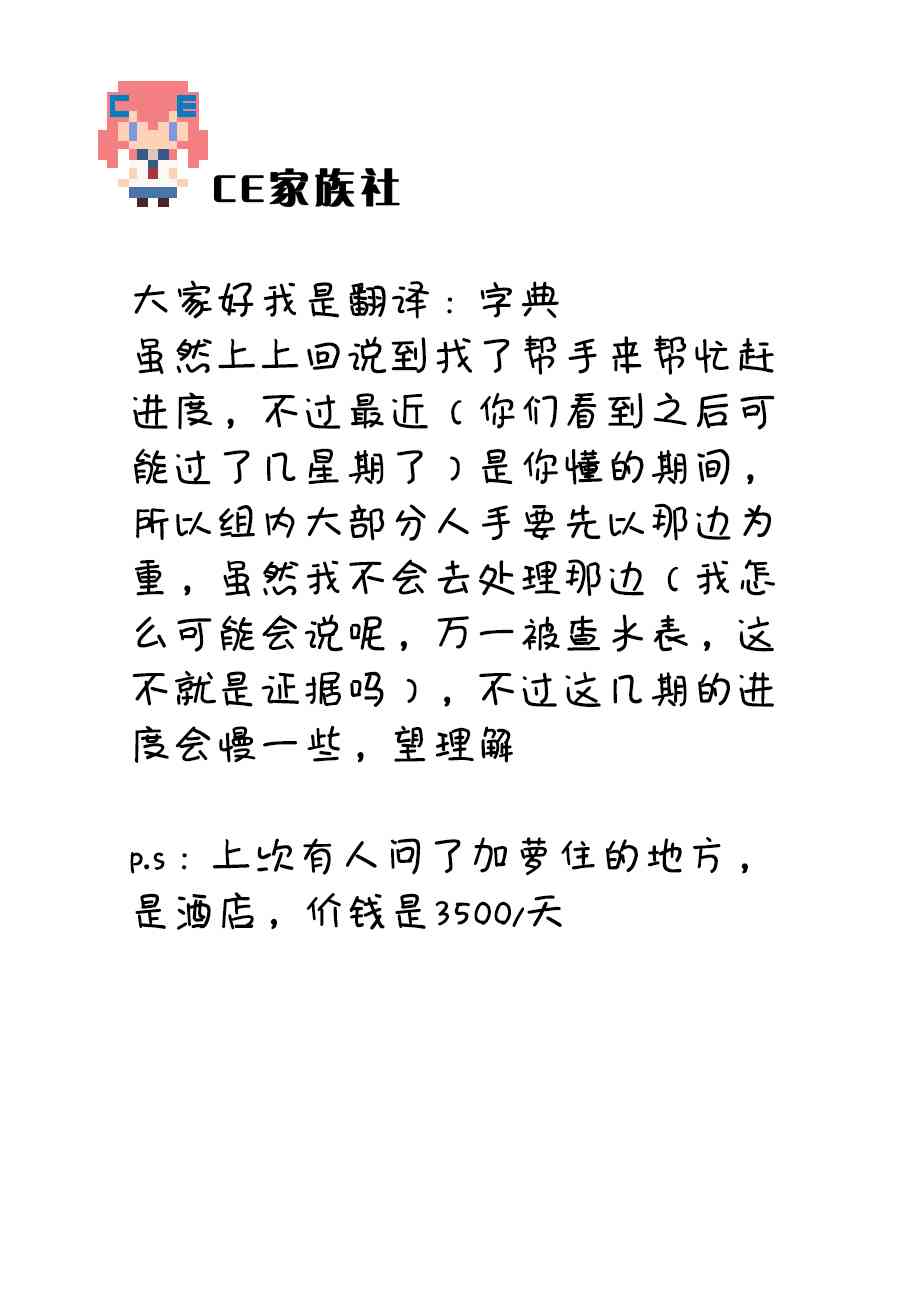 C E
CE家族社
大家好我是翻译：字典
虽然上上回说到找了帮手来帮忙赶
进度，不过最近（你们看到之后可
能过了几星期了）是你懂的期间，
所以组内大部分人手要先以那边为
重，虽然我不会去处理那边（我怎
么可能会说呢，万一被查水表，这
不就是证据吗），不过这几期的进
度会慢一些，望理解
p.s：上次有人问了加萝住的地方，
是酒店，价钱是3500/天